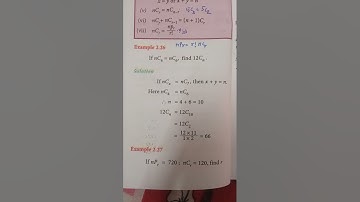 (v) nCₓ = nCₙ₋ₓ 5C₂ = 5C₃
(vi) nCᵣ + nCᵣ₋₁ = (n + 1)Cᵣ
(vii) nCᵣ = nPᵣ/r! nPᵣ = r! nCᵣ
Example 2.26
If nC₄ = nC₆, find 12Cₙ.
Solution
If nCₓ = nCᵧ, then x + y = n.
Here nC₄ = nC₆
∴ n = 4 + 6 = 10
12Cₙ = 12C₁₀
= 12C₂
= 12 × 11 / 1 × 2 = 66
Example 2.27
If nPᵣ = 720 ; nCᵣ = 120, find r